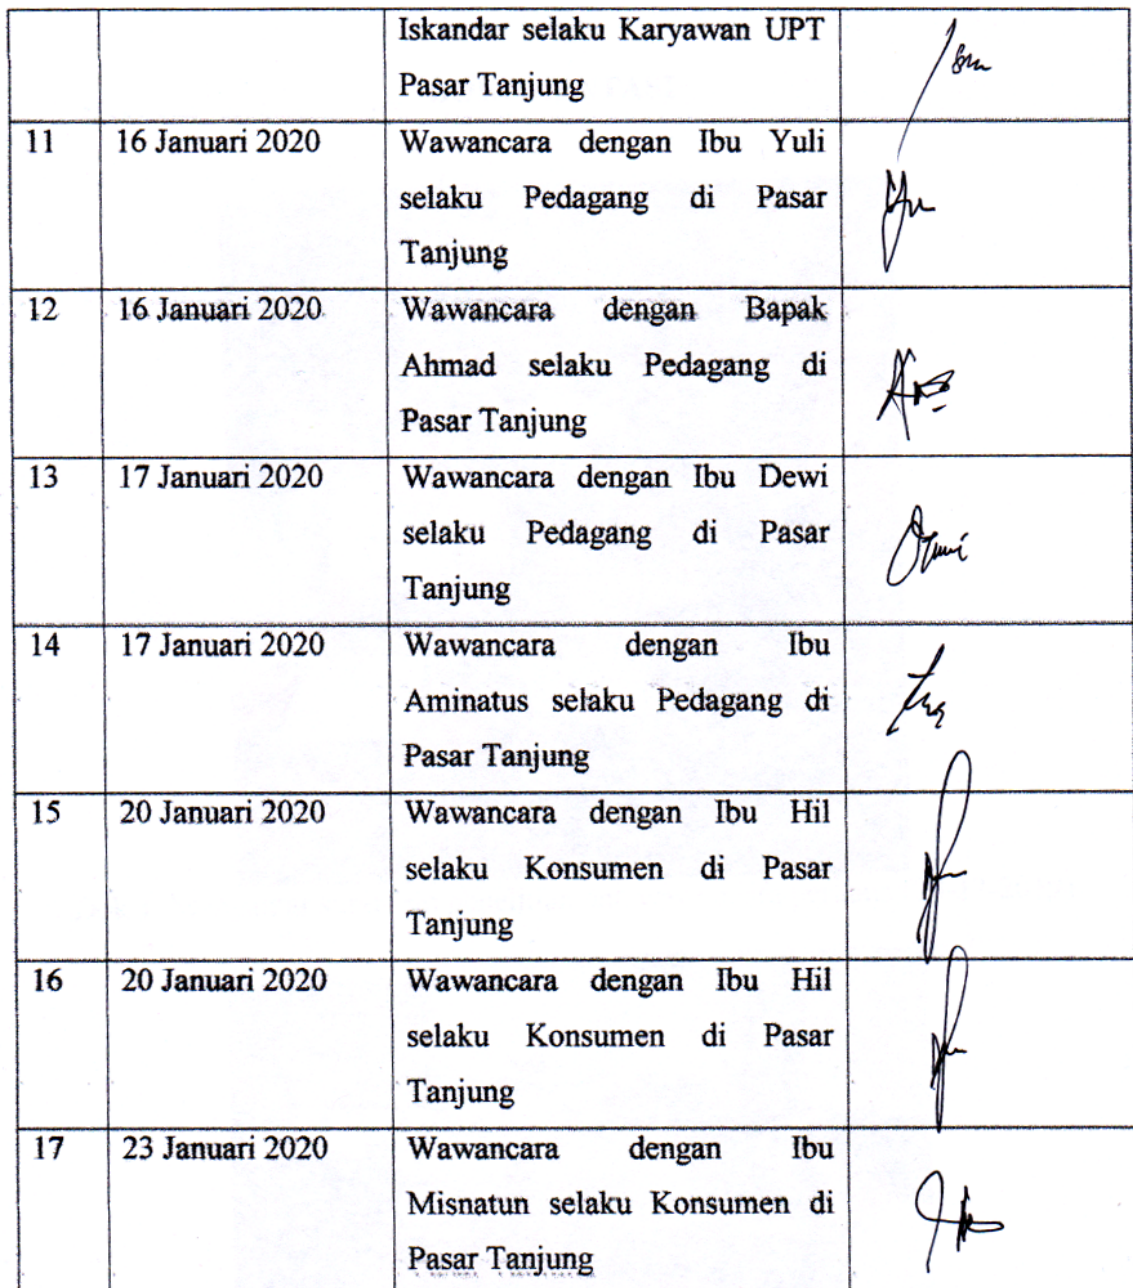 Iskandar selaku Karyawan UPT
Pasar Tanjung
11 16 Januari 2020 Wawancara dengan Ibu Yuli
selaku Pedagang di Pasar
Tanjung
12 16 Januari 2020 Wawancara dengan Bapak
Ahmad selaku Pedagang di
Pasar Tanjung
13 17 Januari 2020 Wawancara dengan Ibu Dewi
selaku Pedagang di Pasar
Tanjung
14 17 Januari 2020 Wawancara dengan Ibu
Aminatus selaku Pedagang di
Pasar Tanjung
15 20 Januari 2020 Wawancara dengan Ibu Hil
selaku Konsumen di Pasar
Tanjung
16 20 Januari 2020 Wawancara dengan Ibu Hil
selaku Konsumen di Pasar
Tanjung
17 23 Januari 2020 Wawancara dengan Ibu
Misnatun selaku Konsumen di
Pasar Tanjung